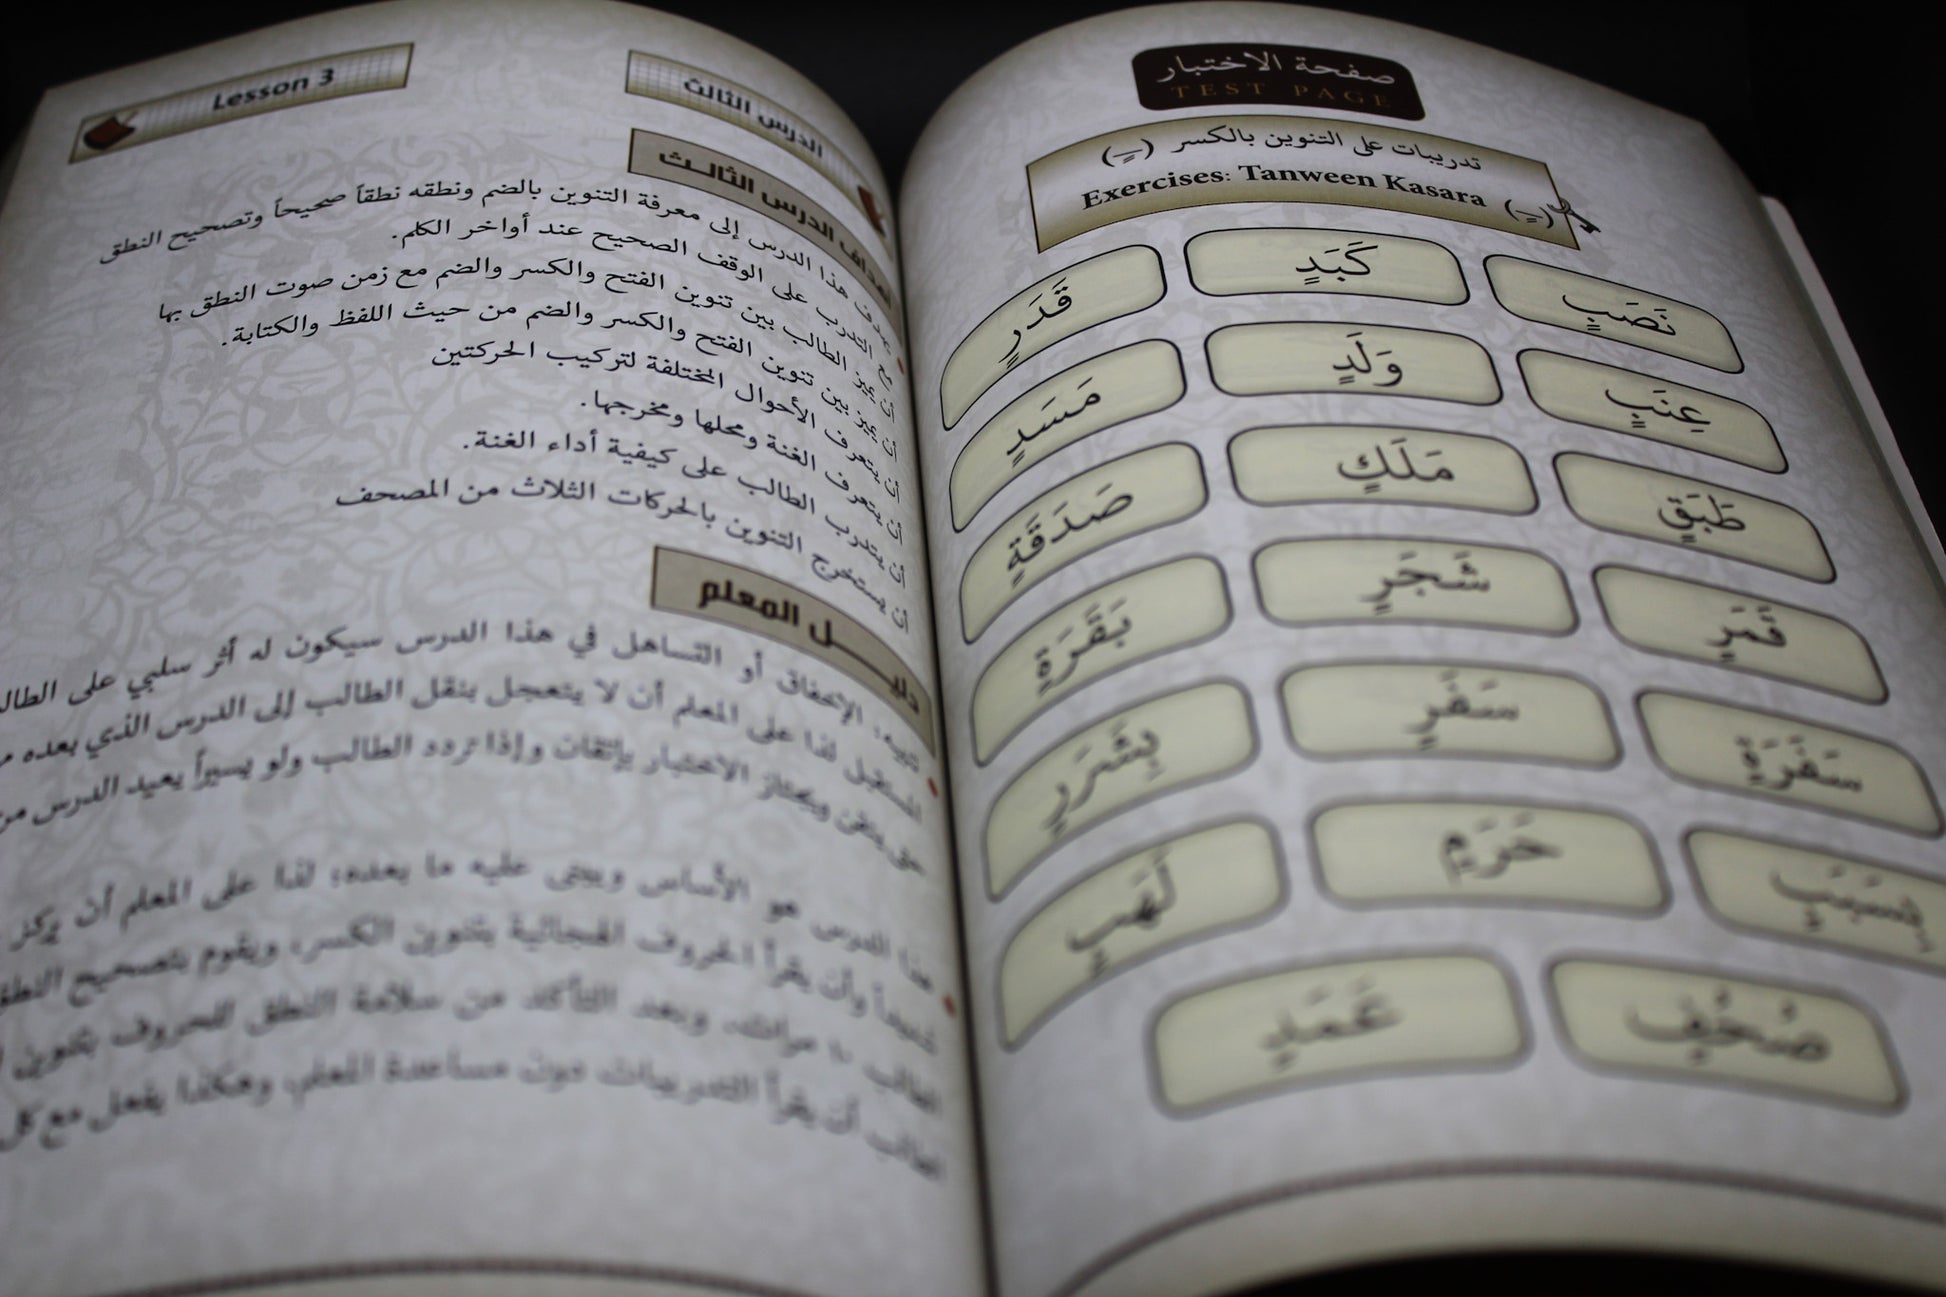 Lesson 3
الدرس الثالث
أهداف الدرس الثالث
يهدف هذا الدرس إلى معرفة التنوين بالضم ونطقه نطقاً صحيحاً وتصحيح النطق
مع التدرب على الوقف الصحيح عند أواخر الكلم.
أن يميز الطالب بين تنوين الفتح والكسر والضم مع زمن صوت النطق بها
أن يميز بين تنوين الفتح والكسر والضم من حيث اللفظ والكتابة.
أن يتعرف الأحوال المختلفة لتركيب الحركتين
أن يتعرف الغنة ومحلها ومخرجها.
أن يتدرب الطالب على كيفية أداء الغنة.
أن يستخرج التنوين بالحركات الثلاث من المصحف
دليل المعلم
تنبيه: الإخفاق أو التساهل في هذا الدرس سيكون له أثر سلبي على
المستقبل لذا على المعلم أن لا يتعجل بنقل الطالب إلى الدرس الذي بعده
حتى يتقن ويجتاز الاختبار بإتقان وإذا تردد الطالب ولو يسيراً يعيد الدرس من
هذا الدرس هو الأساس ويبنى عليه ما بعده، لذا على المعلم أن يركز
وأن يقرأ الحروف الهجائية بتنوين الكسر، ويقوم بتصحيح النطق
الطالب ١٠ مرات، وبعد التأكد من سلامة النطق للحروف بتنوين
الطالب أن يقرأ التدريبات دون مساعدة المعلم، وهكذا يفعل مع كل
صفحة الاختبار
TEST PAGE
تدريبات على التنوين بالكسر (ـٍـ)
Exercises: Tanween Kasara (ـٍـ)
نَصَبٍ كَبَدٍ قَدَرٍ
عِنَبٍ وَلَدٍ مَسَدٍ
طَبَقٍ مَلَكٍ صَدَقَةٍ
قَمَرٍ شَجَرٍ بَقَرَةٍ
سَفَرَةٍ سَفَرٍ بِشَرَرٍ
بِسَبَبٍ حَرَمٍ لَهَبٍ
صُحُفٍ عَمَدٍ